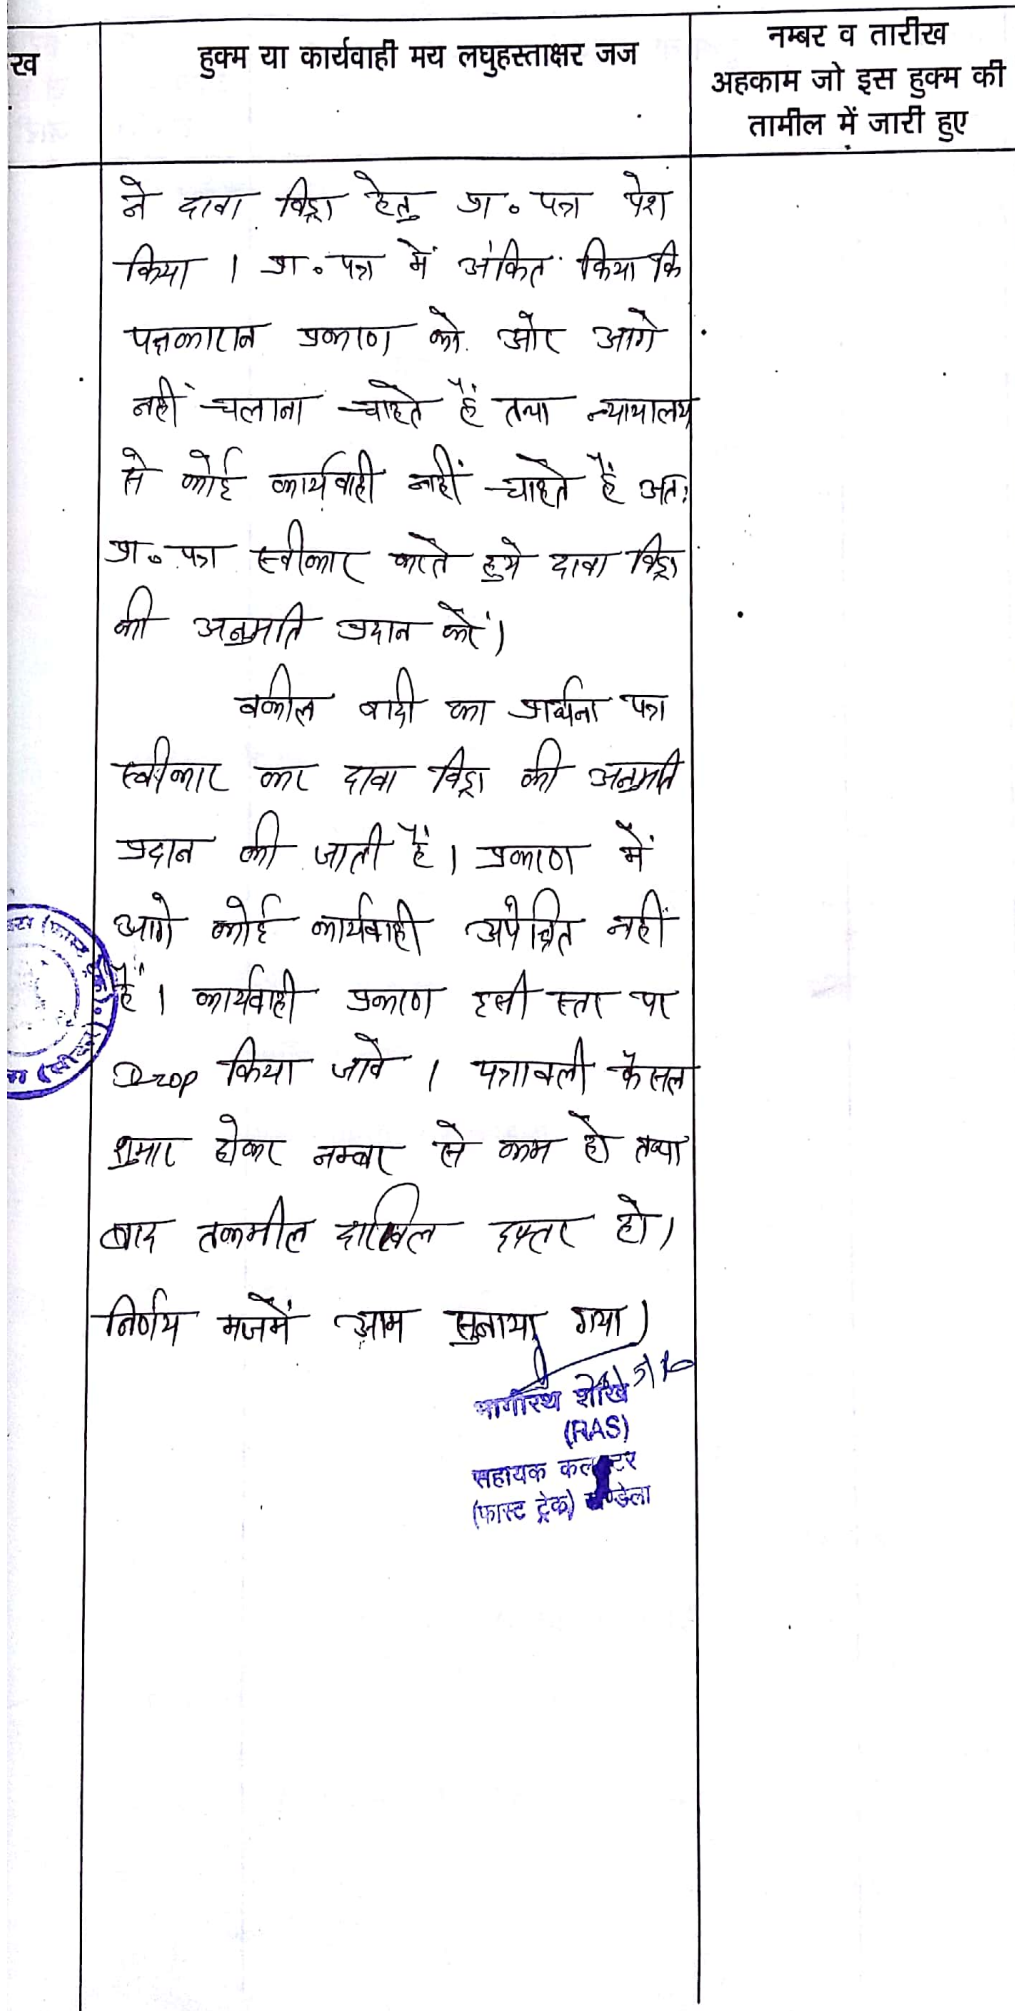 ख
हुक्म या कार्यवाही मय लघुहस्ताक्षर जज
नम्बर व तारीख
अहकाम जो इस हुक्म की
तामील में जारी हुए
ने दावा विड्रा हेतु प्रा० पत्र पेश
किया । प्रा० पत्र में अंकित किया कि
पक्षकारान प्रकरण को और आगे
नहीं चलाना चाहते हैं तथा न्यायालय
से कोई कार्यवाही नहीं चाहते हैं अतः
प्रा० पत्र स्वीकार करते हुये दावा विड्रा
की अनुमति प्रदान करें।
वकील वादी का प्रार्थना पत्र
स्वीकार कर दावा विड्रा की अनुमति
प्रदान की जाती है । प्रकरण में
आगे कोई कार्यवाही अपेक्षित नहीं
हैं । कार्यवाही प्रकरण इसी स्तर पर
Drop किया जावे । पत्रावली फैसल
शुमार होकर नम्बर से कम हो तथा
बाद तकमील दाखिल दफ्तर हो।
निर्णय मजमें आम सुनाया गया।
भागीरथ
(RAS)
सहायक कलक्टर
(फास्ट ट्रेक) खण्डेला